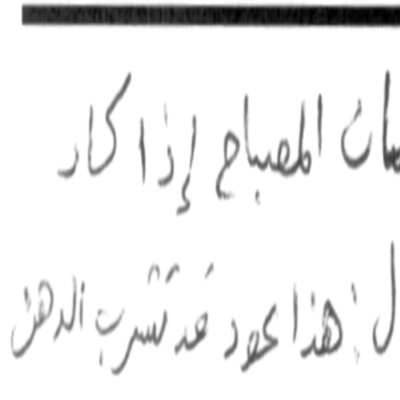 المصباح إذا كان
هذا عود قد تشرب الدهن